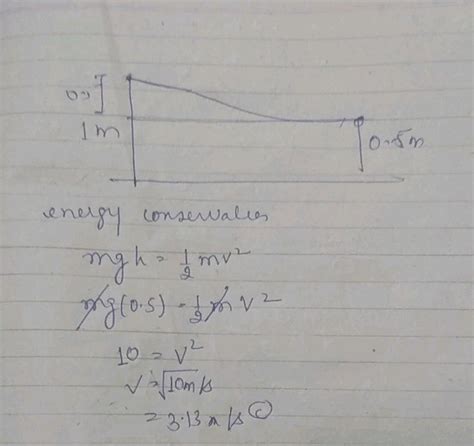 1m
0.5m
energy conservation
mgh = 1/2 mv²
mg(0.5) = 1/2 m v²
10 = v²
v = √10 m/s
= 3.13 m/s ⓒ